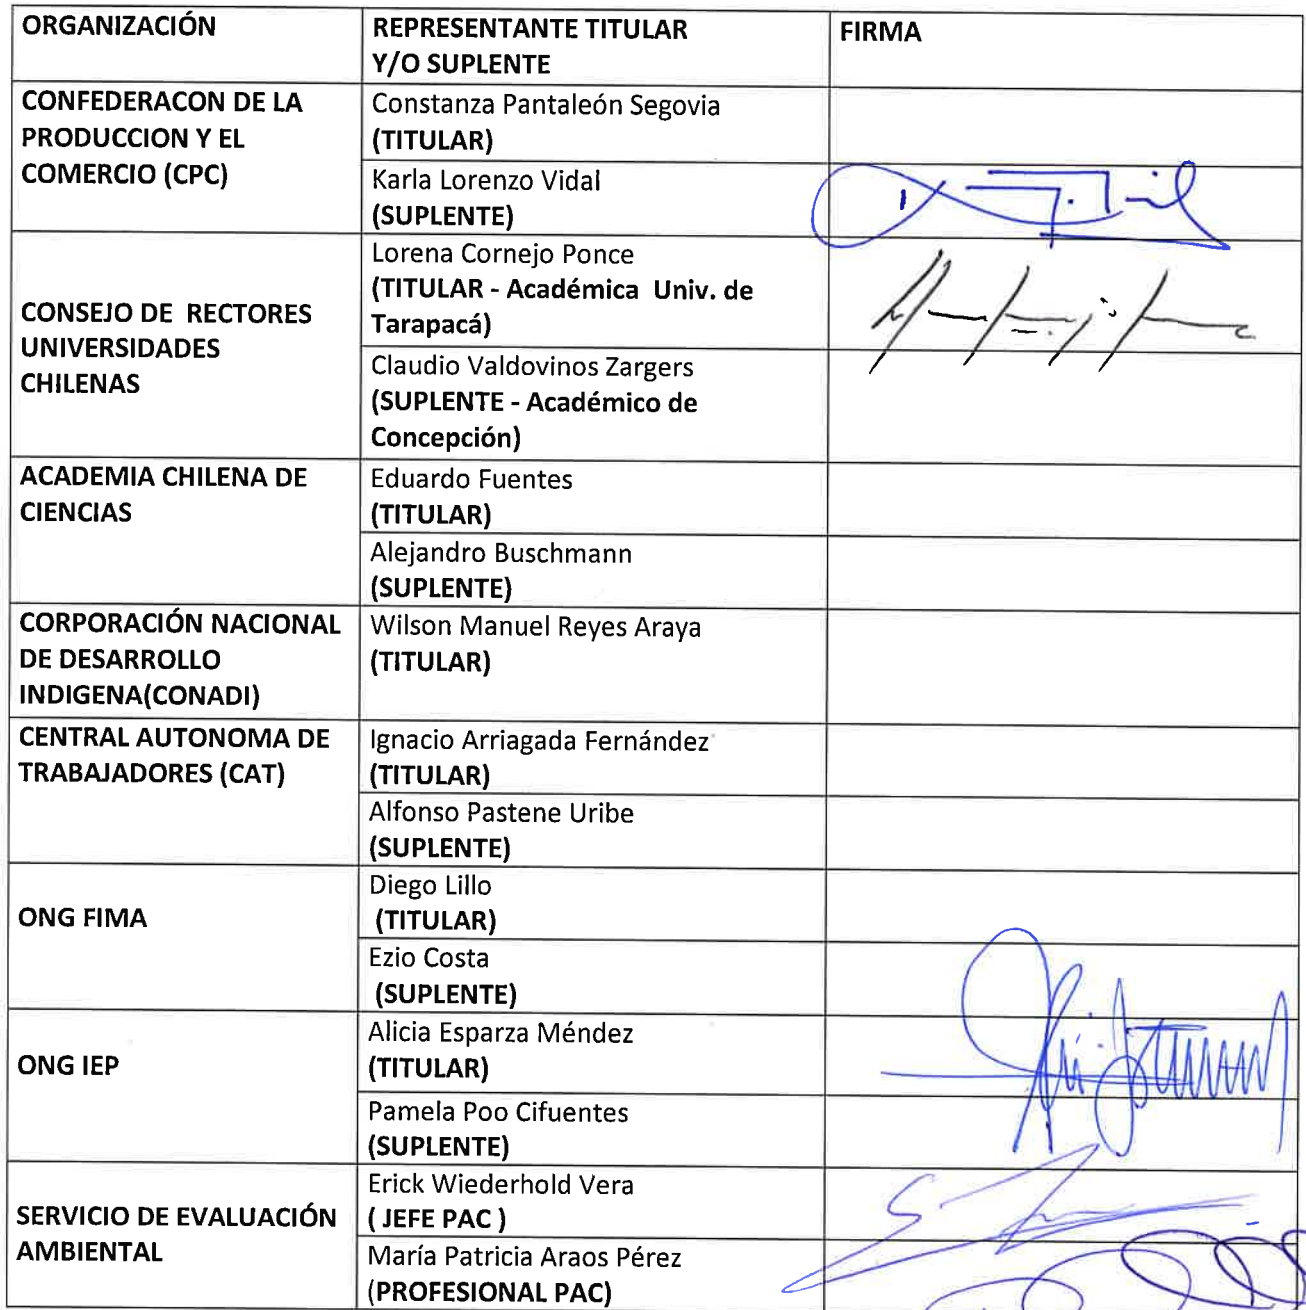 ORGANIZACIÓN
REPRESENTANTE TITULAR
Y/O SUPLENTE
FIRMA
CONFEDERACON DE LA
PRODUCCION Y EL
COMERCIO (CPC)
Constanza Pantaleón Segovia
(TITULAR)
Karla Lorenzo Vidal
(SUPLENTE)
CONSEJO DE RECTORES
UNIVERSIDADES
CHILENAS
Lorena Cornejo Ponce
(TITULAR - Académica Univ. de
Tarapacá)
Claudio Valdovinos Zargers
(SUPLENTE - Académico de
Concepción)
ACADEMIA CHILENA DE
CIENCIAS
Eduardo Fuentes
(TITULAR)
Alejandro Buschmann
(SUPLENTE)
CORPORACIÓN NACIONAL
DE DESARROLLO
INDIGENA(CONADI)
Wilson Manuel Reyes Araya
(TITULAR)
CENTRAL AUTONOMA DE
TRABAJADORES (CAT)
Ignacio Arriagada Fernández
(TITULAR)
Alfonso Pastene Uribe
(SUPLENTE)
ONG FIMA
Diego Lillo
(TITULAR)
Ezio Costa
(SUPLENTE)
ONG IEP
Alicia Esparza Méndez
(TITULAR)
Pamela Poo Cifuentes
(SUPLENTE)
SERVICIO DE EVALUACIÓN
AMBIENTAL
Erick Wiederhold Vera
( JEFE PAC )
María Patricia Araos Pérez
(PROFESIONAL PAC)